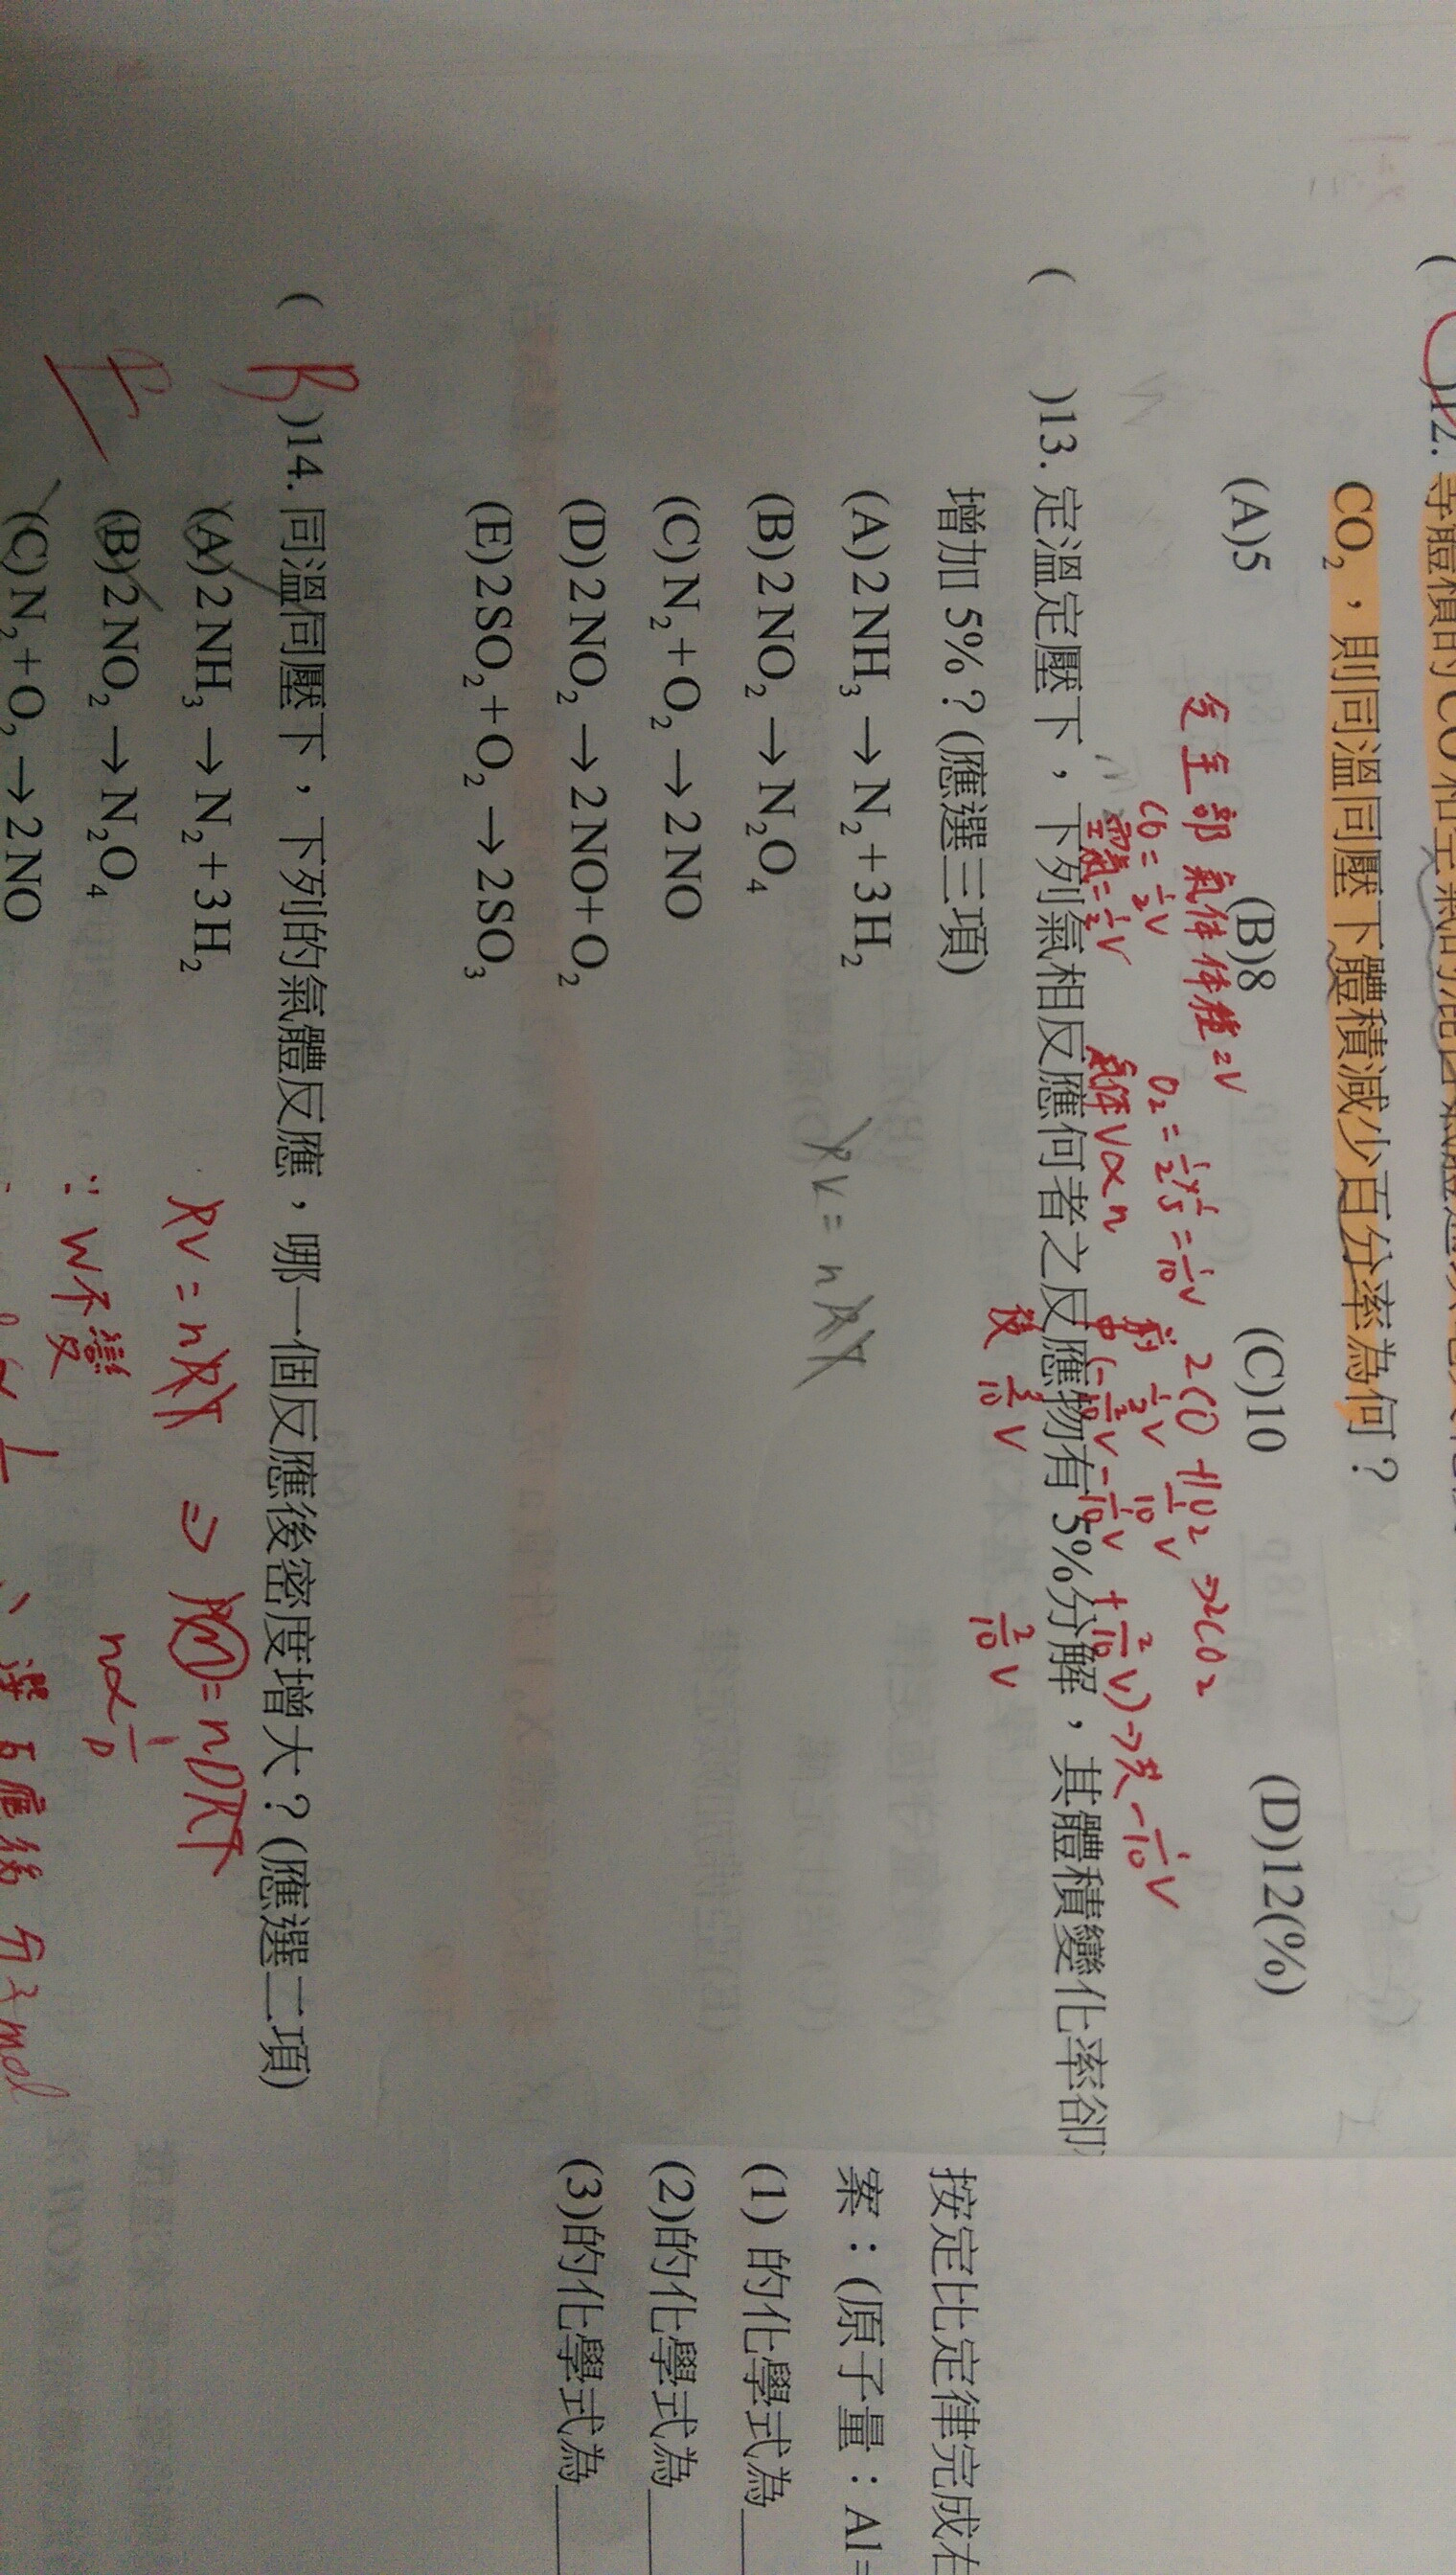 )12. 等體積的CO和空氣
CO₂，則同溫同壓下體積減少百分率為何？
(A)5 (B)8 (C)10 (D)12(%)
全部氣體体積=V
2CO + 1O₂ → 2CO₂
CO = 1/2 V
空氣 = 1/2 V
O₂ = 1/2 × 1/5 = 1/10 V
氣体 V∝n
前 1/2 V 1/10 V
中 (- 2/10 V - 1/10 V + 2/10 V) → 共 - 1/10 V
後 3/10 V 2/10 V
( )13. 定溫定壓下，下列氣相反應何者之反應物有 5%分解，其體積變化率卻
增加 5%？(應選三項)
(A) 2 NH₃ → N₂ + 3H₂
(B) 2 NO₂ → N₂O₄
(C) N₂ + O₂ → 2 NO
(D) 2 NO₂ → 2 NO+ O₂
(E) 2 SO₂ + O₂ → 2SO₃
PV = nRT
( B )14. 同溫同壓下，下列的氣體反應，哪一個反應後密度增大？(應選二項)
E
(A) 2 NH₃ → N₂ + 3H₂
(B) 2 NO₂ → N₂O₄
(C) N₂ + O₂ → 2 NO
PV = nRT ⇒ PM = nDRT
∵ W不變 n∝1/D
選反應後 分子mol
按定比定律完成右
案：(原子量：Al=
(1) 的化學式為
(2)的化學式為
(3)的化學式為